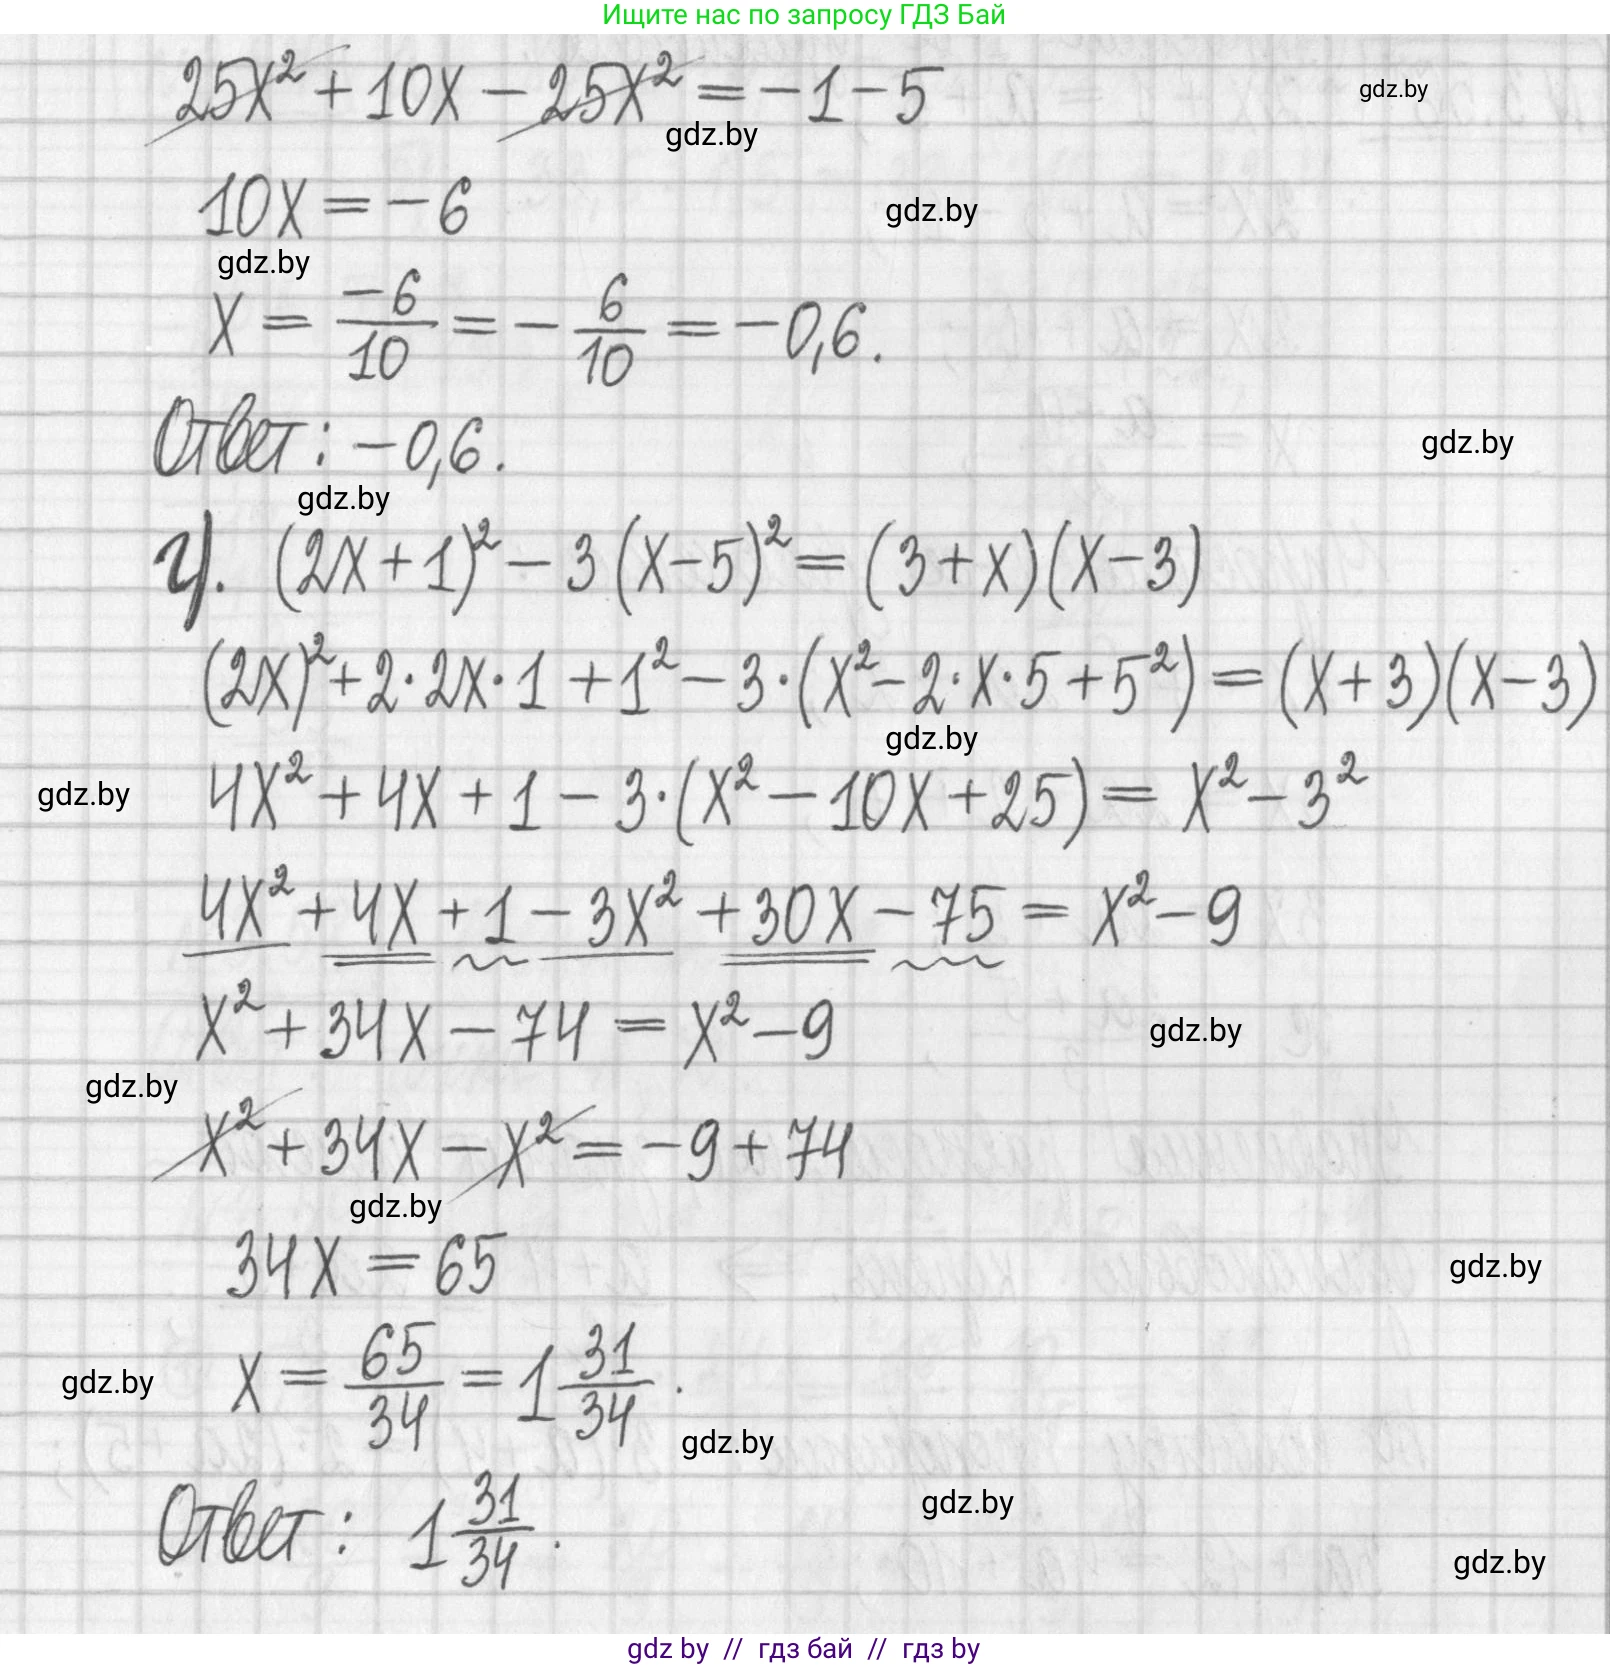 Ищите нас по запросу ГДЗ Бай
25x² + 10x - 25x² = -1 - 5
gdz.by
gdz.by
10x = -6
gdz.by
gdz.by
x = -6/10 = - 6/10 = -0,6.
Ответ: -0,6.
gdz.by
gdz.by
4). (2x+1)² - 3(x-5)² = (3+x)(x-3)
(2x)² + 2·2x·1 + 1² - 3·(x² - 2·x·5 + 5²) = (x+3)(x-3)
gdz.by
gdz.by
4x² + 4x + 1 - 3·(x² - 10x + 25) = x² - 3²
4x² + 4x + 1 - 3x² + 30x - 75 = x² - 9
x² + 34x - 74 = x² - 9
gdz.by
gdz.by
x² + 34x - x² = -9 + 74
gdz.by
34x = 65
gdz.by
x = 65/34 = 1 31/34.
gdz.by
gdz.by
gdz.by
Ответ: 1 31/34.
gdz.by
gdz by // гдз бай // гдз by